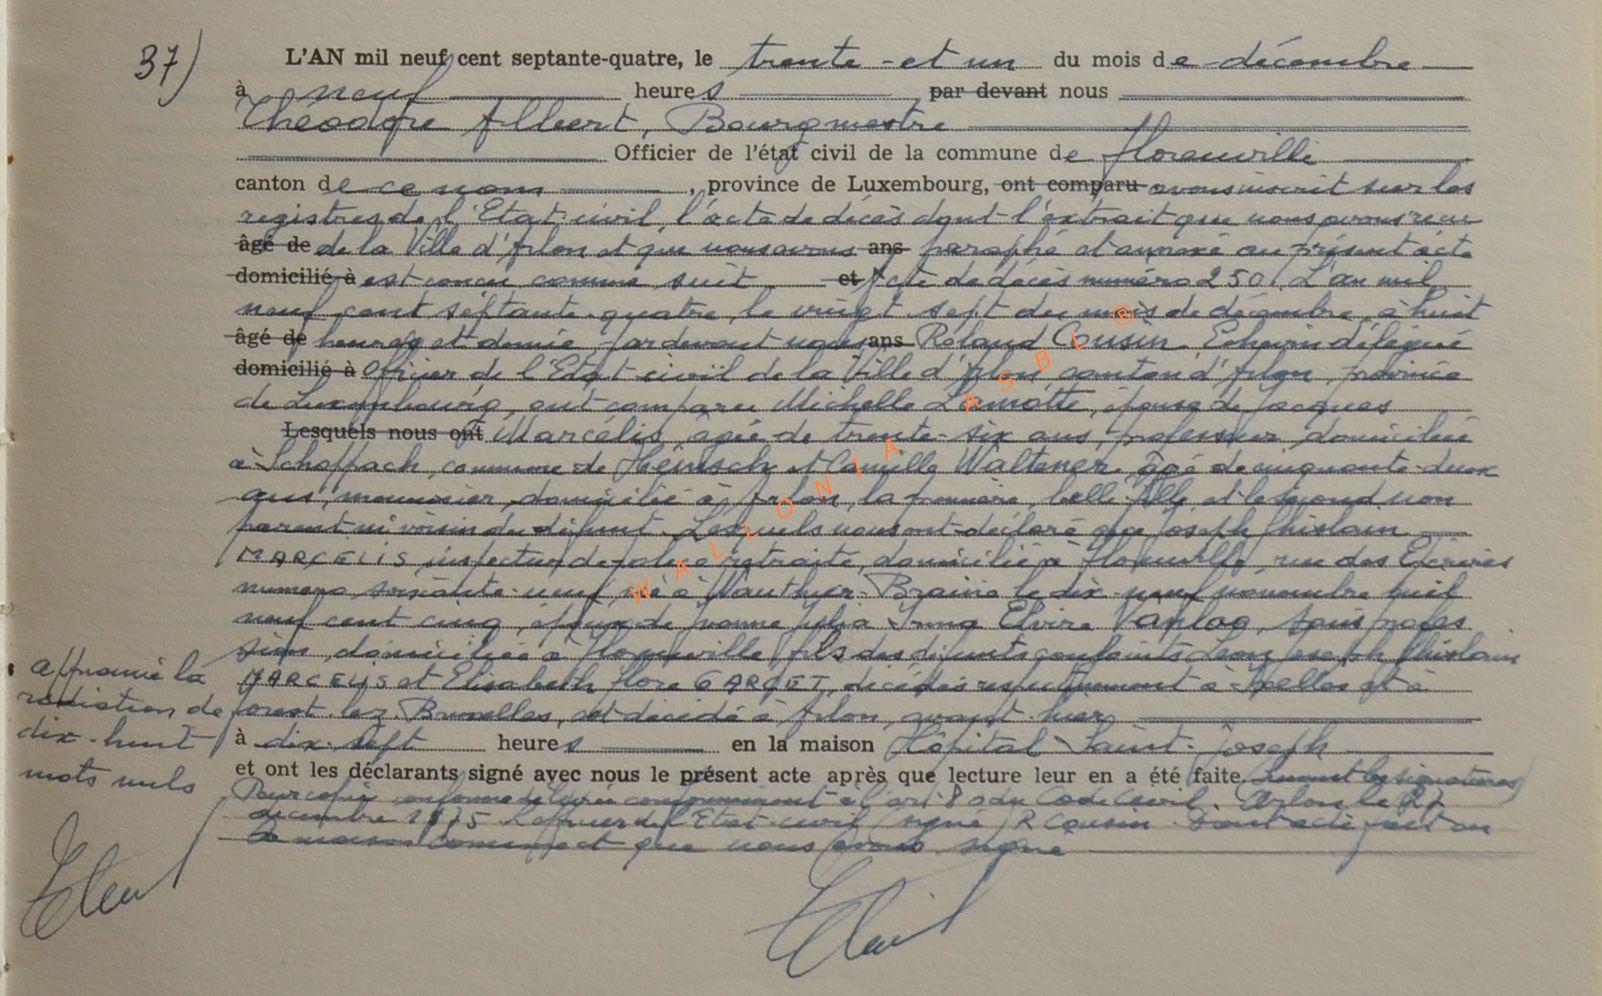 37)
L'AN mil neuf cent septante-quatre, le trente-et un du mois de décembre
à neuf heures par devant nous
Théodore Albert, Bourgmestre
Officier de l'état civil de la commune de Florenville
canton de ce nom, province de Luxembourg, ont comparu avons inscrit sur les
registres de l'Etat-civil, l'acte de décès dont l'extrait que nous avons reçu
âgé de de la Ville d'Arlon et que nous avons ans paraphé et annexé au présent acte
domicilié à est conçu comme suit et Acte de décès numéro 250. L'an mil
neuf cent septante-quatre, le vingt-sept du mois de décembre, à huit
âgé de heures et demie, par devant nous ans Roland Cousin Echevin délégué
domicilié à Officier de l'Etat-civil de la Ville d'Arlon canton d'Arlon, province
de Luxembourg, ont comparu Michelle Lamotte, épouse de Jacques
Lesquels nous ont Marcélis, âgée de trente-six ans, professeur, domiciliée
à Schoppach, commune de Heinsch et Camille Waltener, âgé de cinquante-deux
ans, menuisier, domicilié à Arlon, la première, belle-fille et le second non
parent ni voisin du défunt. Lesquels nous ont déclaré que Joseph Ghislain
MARCELIS, inspecteur de police retraité, domicilié à Florenville, rue des Epicéas
numéro soixante-neuf, né à Wauthier-Braine le dix-neuf novembre mil
neuf cent cinq, époux de Yvonne Julia Irma Elvire Vanlog, sans profes
sion, domiciliée à Florenville, fils des défunts conjoints Léon Joseph Ghislain
MARCELIS et Elisabeth Flore GARCET, décédés respectivement à Ixelles et à
Forest-lez-Bruxelles, est décédé à Arlon, avant-hier
à dix-sept heures en la maison Hôpital Saint-Joseph
et ont les déclarants signé avec nous le présent acte après que lecture leur en a été faite. (suivent les signatures)
Pour copie conforme délivrée conformément à l'art. 80 du Code Civil. Arlon le 27
décembre 1975 L'officier de l'Etat-civil (signé) R Cousin. Dont acte fait en
la maison commune et que nous avons signé
approuvé la
radiation de
dix-huit
mots nuls
WALLONIA ASBL ®